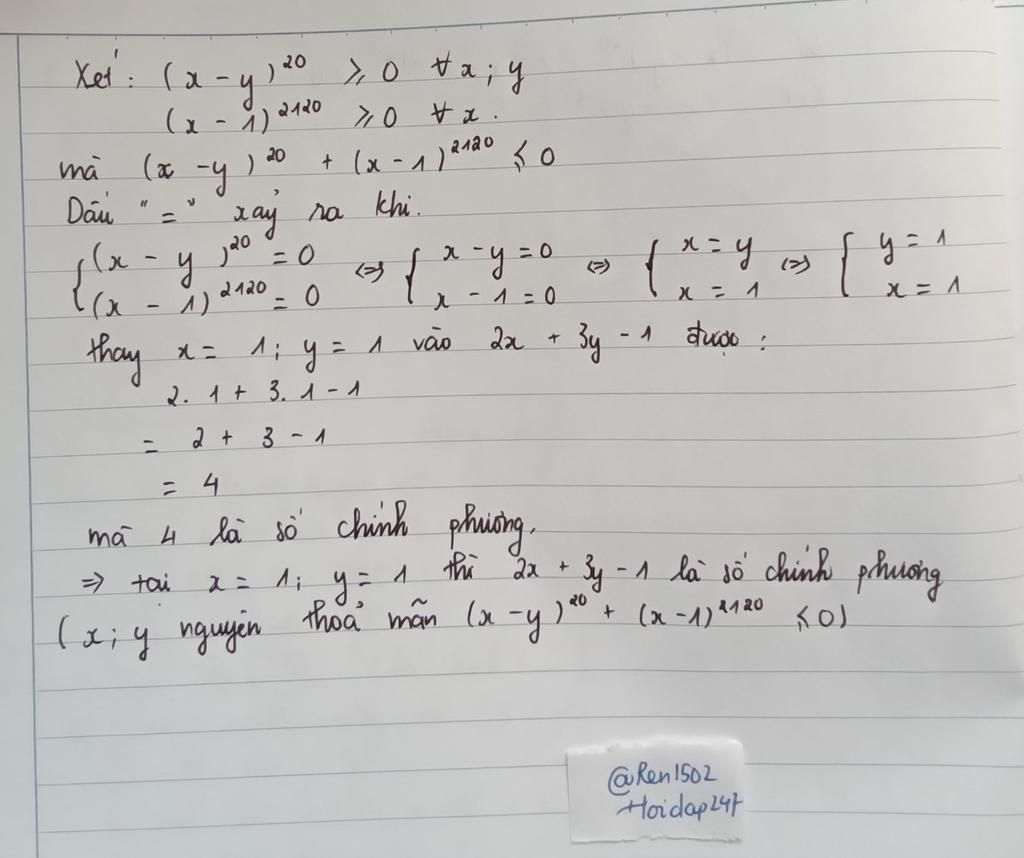 Xét: (x - y)^20 ⩾ 0 ∀ x; y
(x - 1)^2120 ⩾ 0 ∀ x.
mà (x - y)^20 + (x - 1)^2120 ⩽ 0
Dấu "=" xảy ra khi.
{ (x - y)^20 = 0 ⇔ { x - y = 0 ⇔ { x = y ⇔ { y = 1
(x - 1)^2120 = 0 x - 1 = 0 x = 1 x = 1
thay x = 1; y = 1 vào 2x + 3y - 1 được:
2. 1 + 3. 1 - 1
= 2 + 3 - 1
= 4
mà 4 là số chính phương.
⇒ tại x = 1; y = 1 thì 2x + 3y - 1 là số chính phương
(x; y nguyên thoả mãn (x - y)^20 + (x - 1)^2120 ⩽ 0)
@Ren1502
Hoidap247